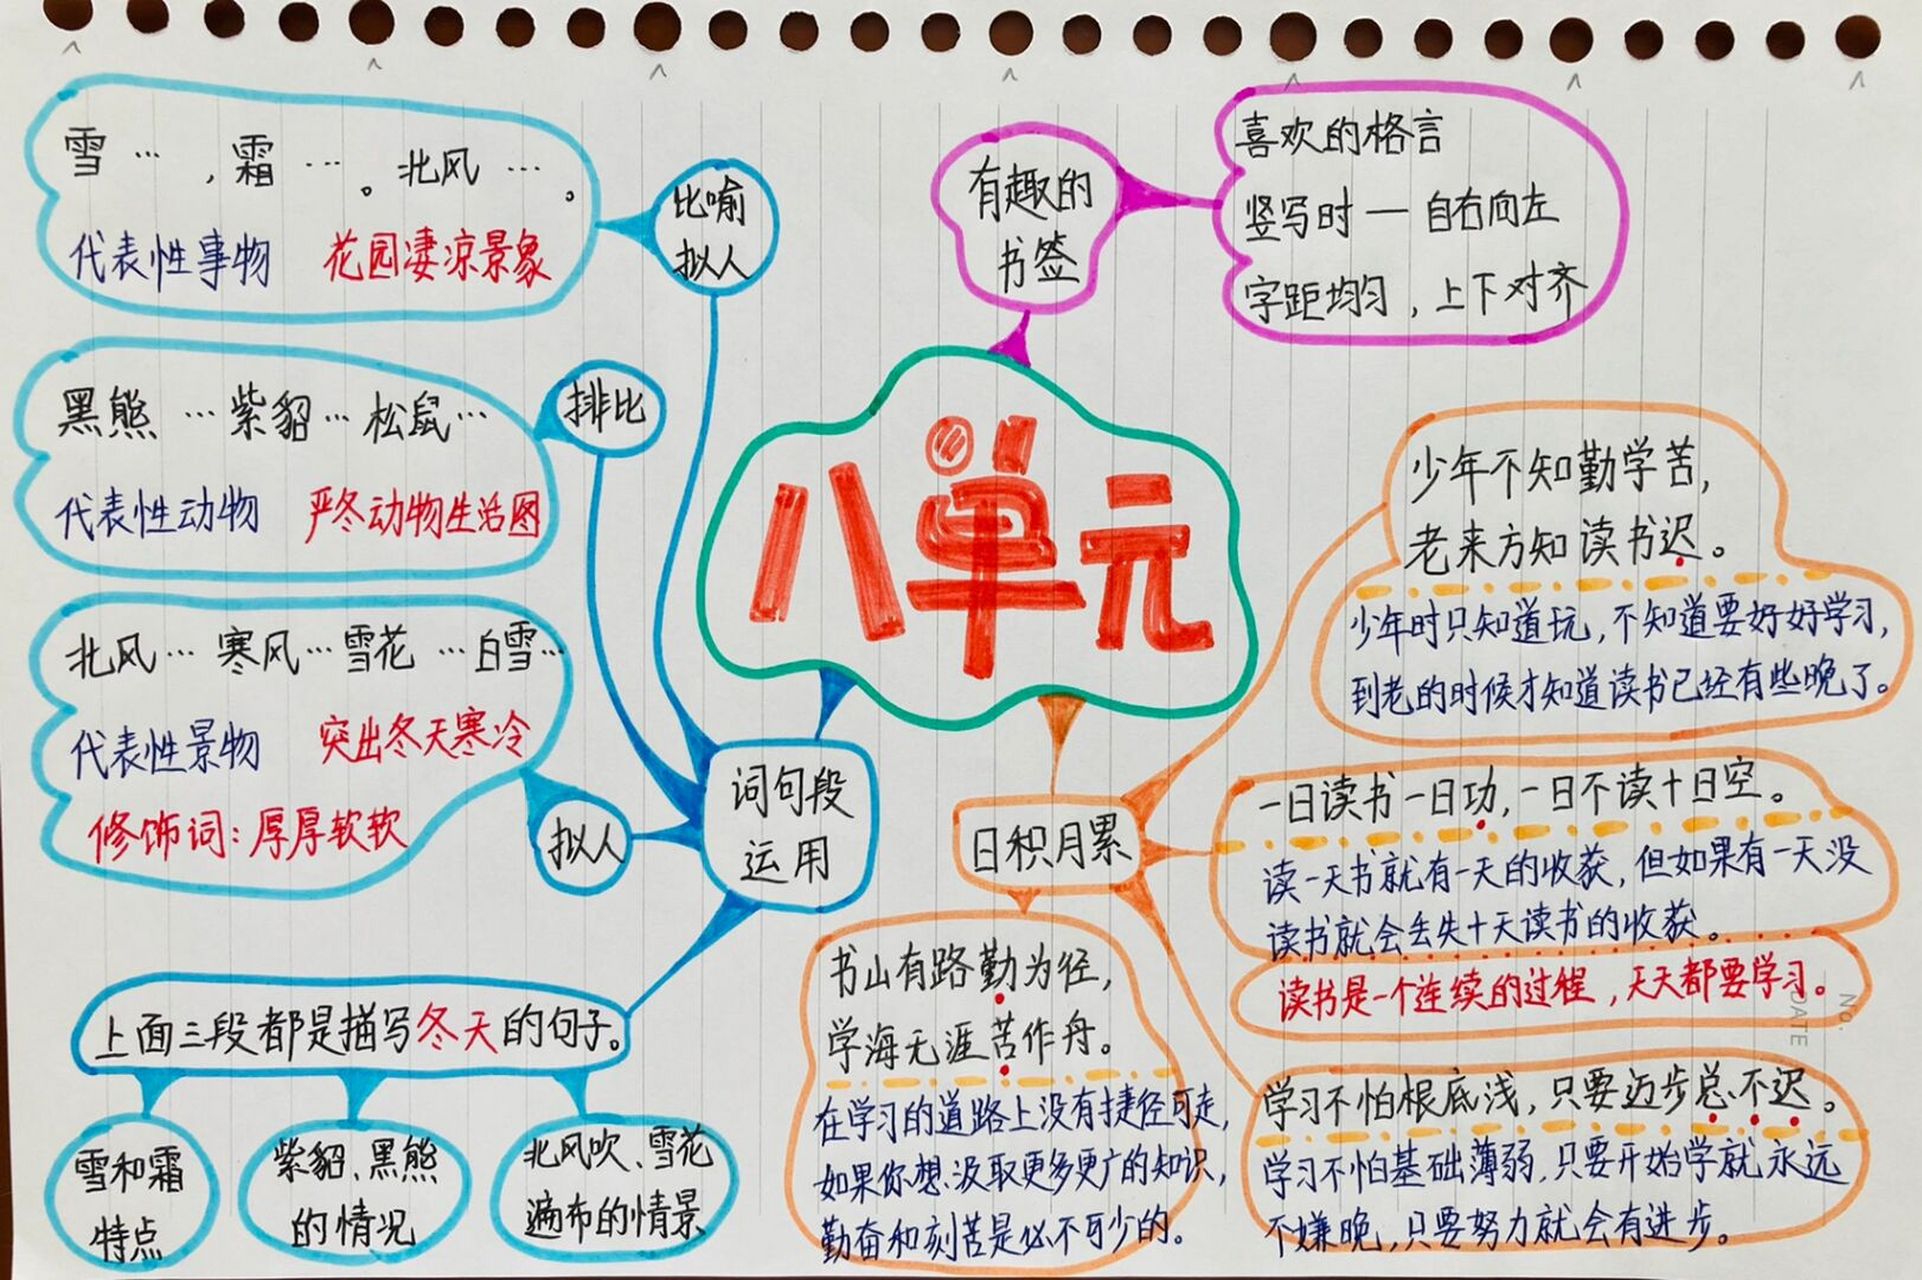 八单元
有趣的
书签
喜欢的格言
竖写时 — 自右向左
字距均匀，上下对齐
词句段
运用
比喻
拟人
雪…，霜…。北风…。
代表性事物 花园凄凉景象
排比
黑熊…紫貂…松鼠…
代表性动物 严冬动物生活图
拟人
北风…寒风…雪花…白雪…
代表性景物 突出冬天寒冷
修饰词：厚厚软软
上面三段都是描写冬天的句子。
雪和霜
特点
紫貂、黑熊
的情况
北风吹、雪花
遍布的情景
日积月累
少年不知勤学苦，
老来方知读书迟。
少年时只知道玩，不知道要好好学习，
到老的时候才知道读书已经有些晚了。
一日读书一日功，一日不读十日空。
读一天书就有一天的收获，但如果有一天没
读书就会丢失十天读书的收获。
读书是一个连续的过程，天天都要学习。
学习不怕根底浅，只要迈步总不迟。
学习不怕基础薄弱，只要开始学就永远
不嫌晚，只要努力就会有进步。
书山有路勤为径，
学海无涯苦作舟。
在学习的道路上没有捷径可走，
如果你想汲取更多更广的知识，
勤奋和刻苦是必不可少的。
No.
DATE